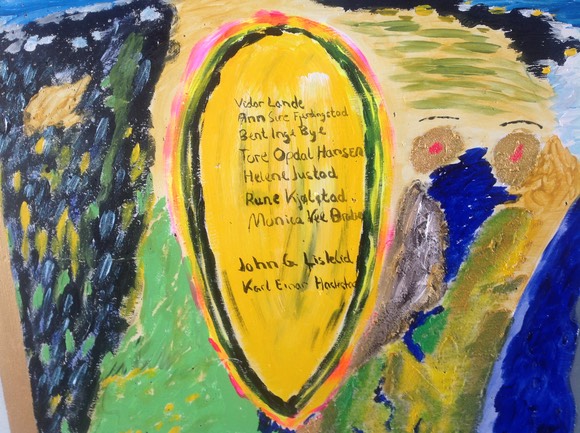 Vidar Lande
Ann Siri Fjerdingstad
Bent Inge Bye
Tore Opdal Hansen
Helene Justad
Rune Kjølstad
Monica
John G Liskelid
Karl Einar Haakstad